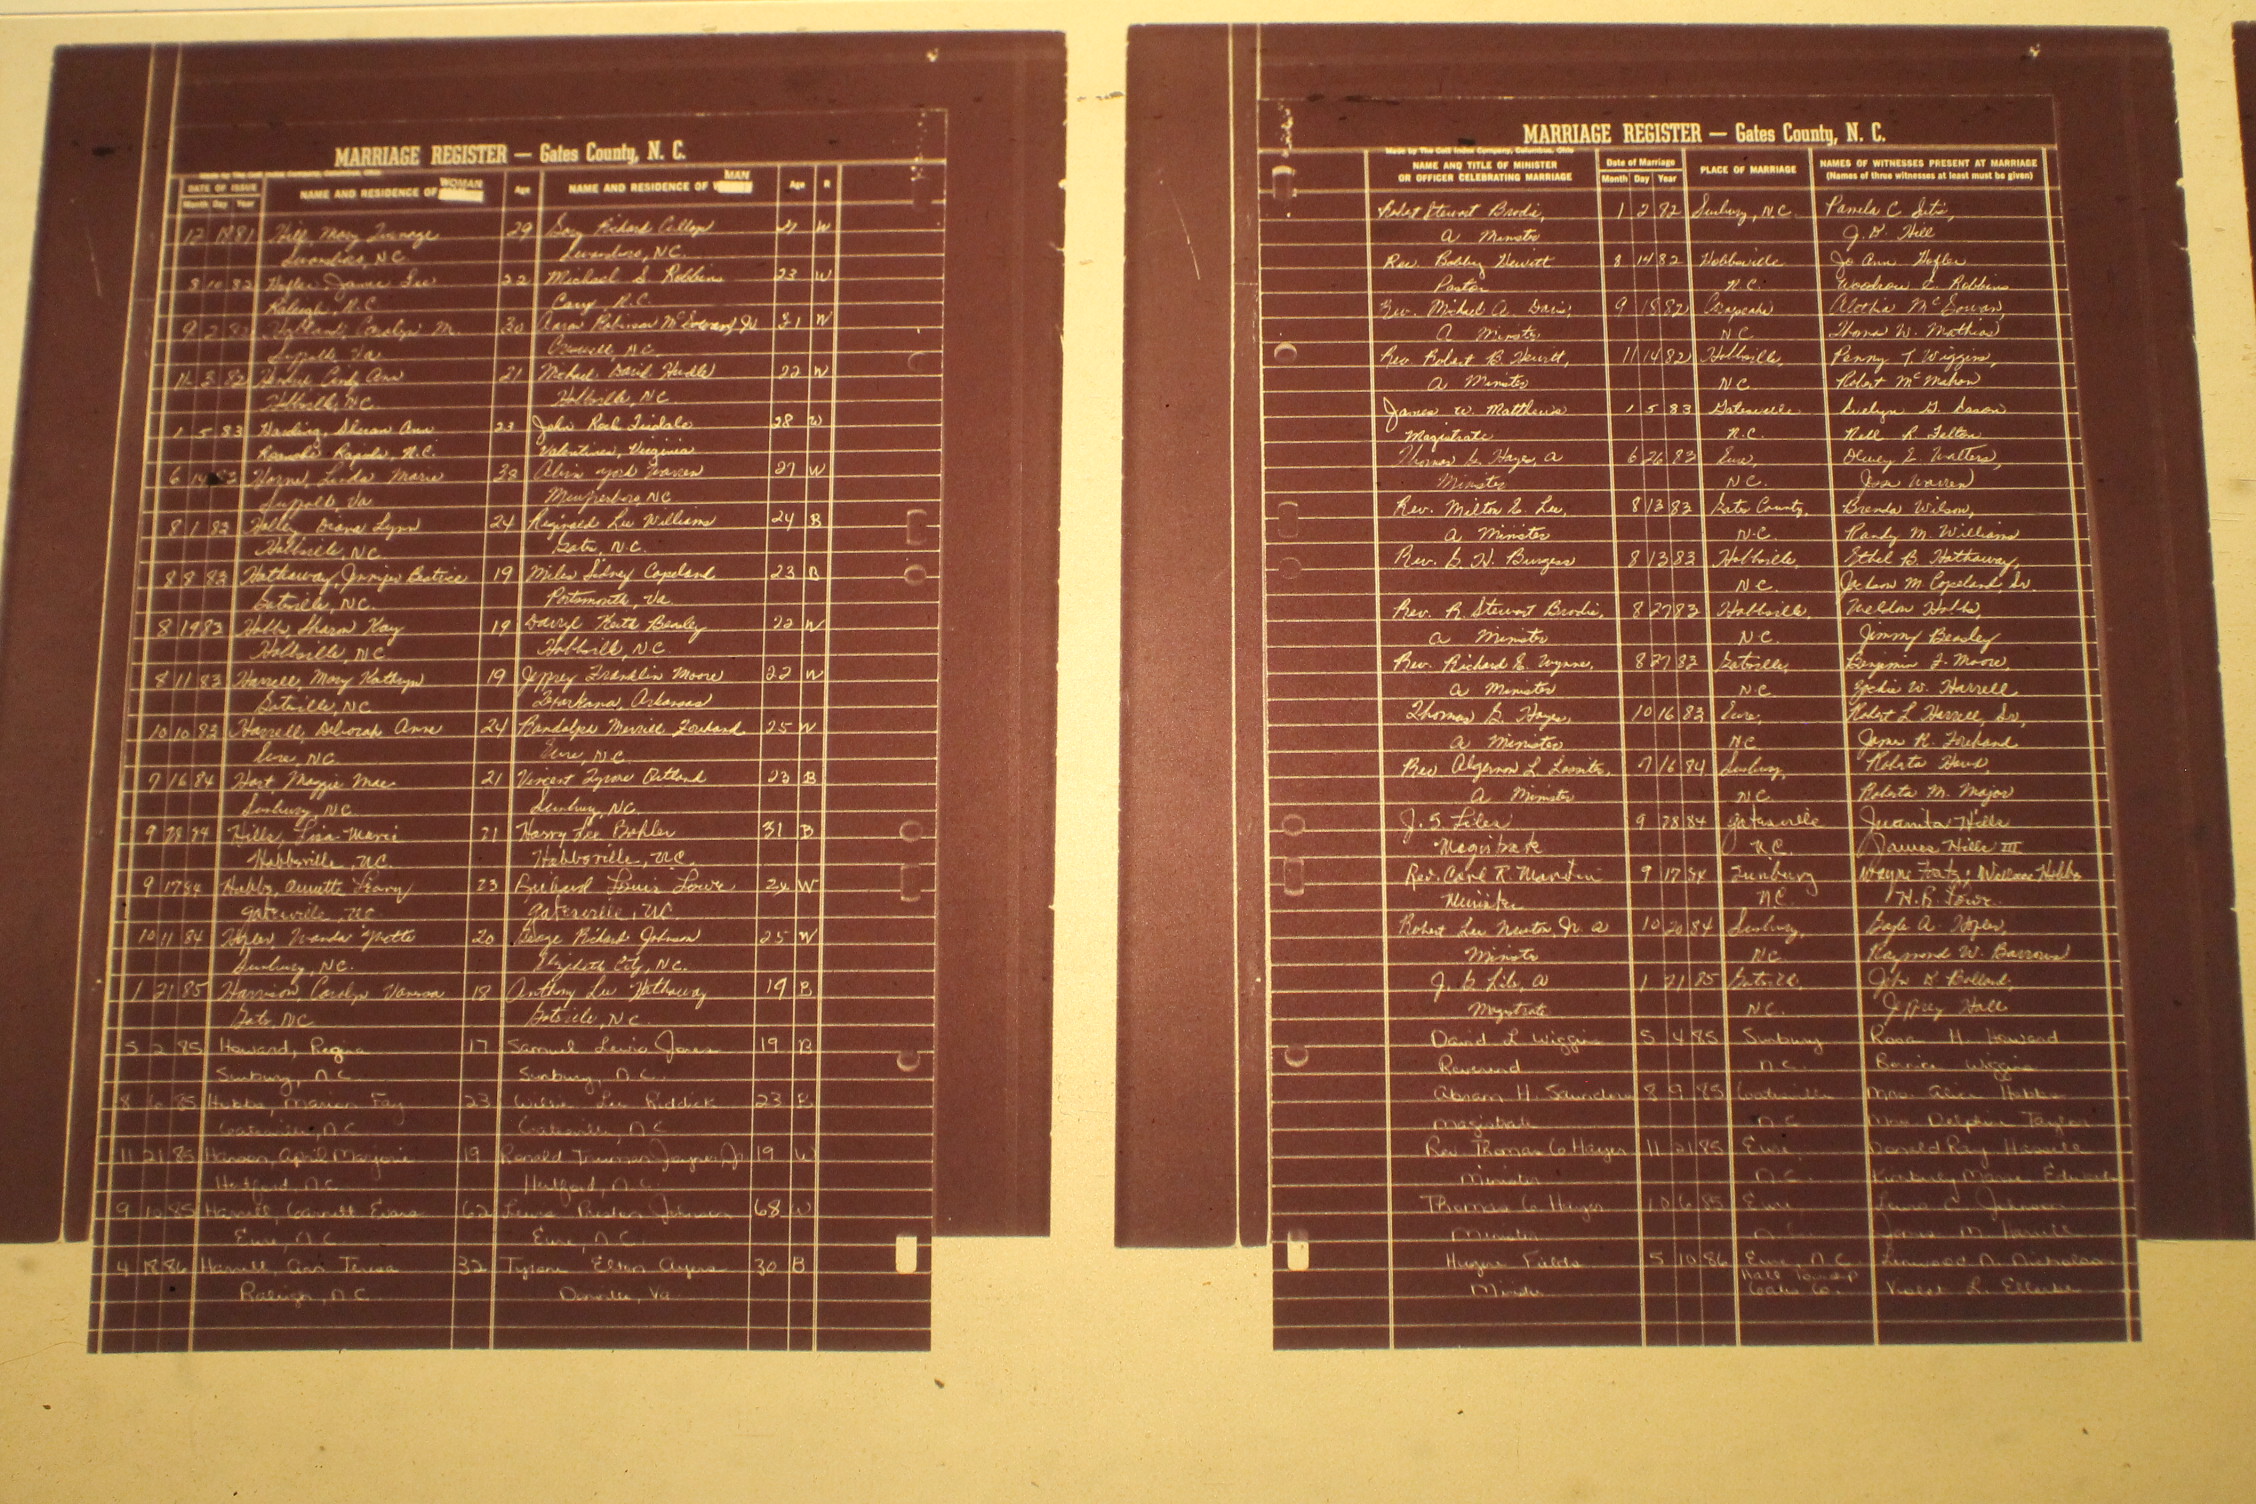 MARRIAGE REGISTER — Gates County, N. C.
Made by The Cott Index Company, Columbus, Ohio
DATE OF ISSUE NAME AND RESIDENCE OF WOMAN Age NAME AND RESIDENCE OF MAN Age R
Month Day Year
12 18 81 Hill, Mary 29 Gary Richard 27 W
N.C. N.C.
8 10 82 Hofler Janie Sue 22 Michael S. Robbins 23 W
Raleigh, N.C. Cary, N.C.
9 2 82 Holland, Carolyn M. 30 Aaron Robinson Jr. 31 W
Suffolk, Va N.C.
11 3 82 Cindy Ann 21 Michael David 22 W
Hobbsville, N.C. Hobbsville, N.C.
1 5 83 Harding, Ann 23 John Tisdale 28 W
Roanoke Rapids, N.C. Valentines, Virginia
6 83 Horne, Linda Marie 28 Alvin York Warren 27 W
Suffolk Va N.C.
8 1 83 Holley Diana Lynn 24 Reginald Lee Williams 24 B
Hobbsville, N.C. Gates, N.C.
8 8 83 Hathaway, Jennifer Beatrice 19 Miles Sidney Copeland 23 B
Gatesville, N.C. Portsmouth, Va.
8 19 83 Hobbs, Sharon Kay 19 Darryl Keith Beasley 22 W
Hobbsville, N.C. Hobbsville, N.C.
8 11 83 Harrell, Mary Kathryn 19 Jeffrey Franklin Moore 22 W
Gatesville, N.C. Texarkana, Arkansas
10 10 83 Harrell, Deborah Anne 24 Randolph Merrill Forehand 25 W
Eure, N.C. Eure, N.C.
7 16 84 Hart, Maggie Mae 21 Vincent Tyrone Outland 23 B
Sunbury, N.C. Sunbury, N.C.
9 28 84 Hills, Lisa Marie 21 Harry Lee Bohler 31 B
Hobbsville, N.C. Hobbsville, N.C.
9 17 84 Hobbs, Annette Leary 23 Richard Louis Lowe 24 W
Gatesville, N.C. Gatesville, N.C.
10 11 84 Hofler, Wanda Yvette 20 George Richard Johnson 25 W
Sunbury, N.C. Elizabeth City, N.C.
1 21 85 Harrison, Carolyn Vanessa 18 Anthony Lee Hathaway 19 B
Gates, N.C. Gatesville, N.C.
5 2 85 Howard, Regina 17 Samuel Lewis Jones 19 B
Sunbury, N.C. Sunbury, N.C.
8 6 85 Hobbs, Marion Fay 23 Willie Lee Riddick 23 B
Gatesville, N.C. Gatesville, N.C.
11 21 85 Hanson, April Marjorie 19 Ronald Truman Joyner, Jr. 19 W
Hertford, N.C. Hertford, N.C.
9 10 85 Harrell, Garnett Evans 62 Lewis Preston Johnson 68 W
Eure, N.C. Eure, N.C.
4 18 86 Harrell, Ann Teresa 32 Tyrone Elton Ayers 30 B
Raleigh, N.C. Danville, Va
MARRIAGE REGISTER — Gates County, N. C.
Made by The Cott Index Company, Columbus, Ohio
NAME AND TITLE OF MINISTER OR OFFICER CELEBRATING MARRIAGE Date of Marriage PLACE OF MARRIAGE NAMES OF WITNESSES PRESENT AT MARRIAGE
Month Day Year (Names of three witnesses at least must be given)
Robert Stewart Brodie, 1 2 82 Sunbury, N.C. Pamela C.
A Minister J. D. Hill
Rev. Bobby Hewitt 8 14 82 Hobbsville Jo Ann Hofler
Pastor N.C. Woodrow C. Robbins
Rev. Michael A. Davis, 9 18 82 Corapeake
A Minister N.C. Thomas W. Mathias
Rev. Robert B. Hewitt, 11 14 82 Hobbsville, Penny T. Wiggins,
A Minister N.C. Robert McMahon
James W. Matthews 1 5 83 Gatesville Evelyn G. Eason
Magistrate N.C. Nell R. Felton
Thomas G. Hayes, a 6 26 83 Eure, Dewey E. Walters,
Minister N.C. Warren
Rev. Milton E. Lee, 8 13 83 Gates County, Brenda Wilson,
A Minister N.C. Randy M. Williams
Rev. G. H. Burgess 8 13 83 Hobbsville, Ethel B. Hathaway,
N.C. Jackson M. Copeland, Sr.
Rev. R. Stewart Brodie, 8 27 83 Hobbsville, Weldon Hobbs,
A Minister N.C. Jimmy Beasley
Rev. Richard E. Wynne, 8 27 83 Gatesville, Benjamin F. Moore,
A Minister N.C. W. Harrell
Thomas G. Hayes, 10 16 83 Eure, Robert L. Harrell, Sr.,
A Minister N.C. James R. Forehand
Rev Algernon L. Lassiter, 7 16 84 Sunbury, Roberta
A Minister N.C. Roberta M. Major
J. G. Liles 9 28 84 Gatesville Juanita Hills
Magistrate N.C. James Hills III
Rev. Carl R. Martin 9 17 84 Sunbury Wayne ; Wallace Hobbs
Minister N.C. H.R. Lowe
Robert Lee Newton, Jr. a 10 20 84 Sunbury, Gayle A. Hofler,
Minister N.C. Raymond W. Barrows
J. G. Liles, a 1 21 85 Gatesville John D.
Magistrate N.C. Jeffrey Hall
David L Wiggins 5 4 85 Sunbury Rosa H. Howard
Reverend N.C. Bernice Wiggins
Abram H. Saunders 8 9 85 Gatesville Mrs. Alice Hobbs
Magistrate N.C. Mrs Delphine Taylor
Rev. Thomas G Hayes 11 21 85 Eure Donald Ray
Minister N.C. Kimberly Marie Edwards
Thomas G Hayes 10 6 85 Eure C Johnson
Minister N.C. James M. Harrell
Fields 5 10 86 Eure, N.C. Linwood N. Nicholson
Minister Hall Township Gates Co. Violet L.